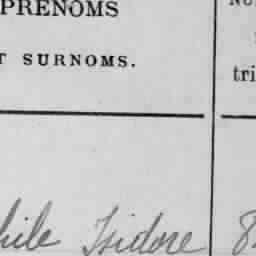 PRENOMS
T SURNOMS.
tri
hile Isidore 8